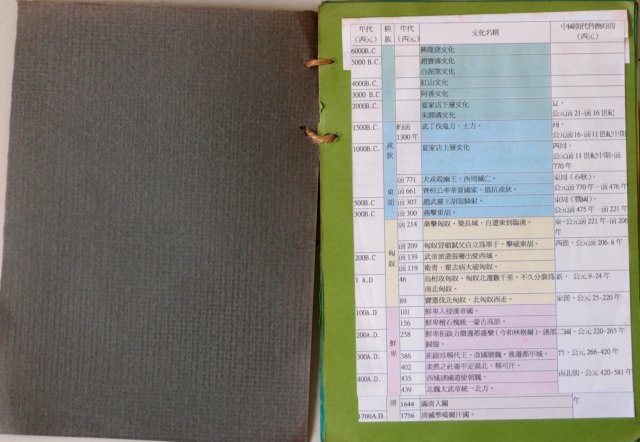 年代
(西元)
種族
年代
(西元)
文化名稱
中國朝代替換時間
(西元)
6000B.C
興隆窪文化
5000 B.C
趙寶溝文化
白泥窯文化
4000B.C
紅山文化
3000 B.C
阿善文化
2000B.C
夏家店下層文化
夏,
朱開溝文化
公元前 21-前 16 世紀
1500B.C
戎狄
約前
1300 年
武丁伐鬼方、土方。
商,
公元前16-前11世紀中期
1000B.C
夏家店上層文化
西周,
公元前 11 世紀中期-前
770 年
前 771
犬戎殺幽王,西周滅亡。
東周 (春秋),
公元前 770 年—前 476 年
東胡
前 661
齊桓公率華夏國家,抵抗戎狄。
500B.C
前 307
趙武靈王胡服騎射。
東周 (戰國),
公元前 475 年—前 221 年
300B.C
前 300
燕擊東胡。
匈奴
前 214
秦擊匈奴,築長城,自遼東到臨洮。
秦,公元前 221 年-前 206
年
前 209
匈奴冒頓弒父自立為單于,擊破東胡。
西漢,公元前 206-8 年
200B.C
前 139
武帝派遣張騫出使西域。
前 119
衛青、霍去病大破匈奴。
1 A.D
46
烏桓攻匈奴,匈奴北遷數千里。不久分裂為
南北匈奴。
新, 公元 9-24 年
89
竇憲伐北匈奴,北匈奴西走。
東漢,公元 25-220 年
100A.D
鮮卑
101
鮮卑入侵漢帝國。
156
鮮卑檀石槐統一蒙古高原。
200A.D.
258
鮮卑拓跋力微遷都盛樂 (今和林格爾),諸部
歸服。
三國,公元 220-265 年
300A.D.
386
拓跋珪稱代王,改國號魏。後遷都平城。
晉,公元 266-420 年
402
柔然之社崙平定漠北,稱可汗。
400A.D.
435
西域諸國遣使朝魏。
南北朝,公元 420-581 年
439
北魏太武帝統一北方。
清
1644
滿清入關
年
1700A.D.
1756
清滅準噶爾汗國。